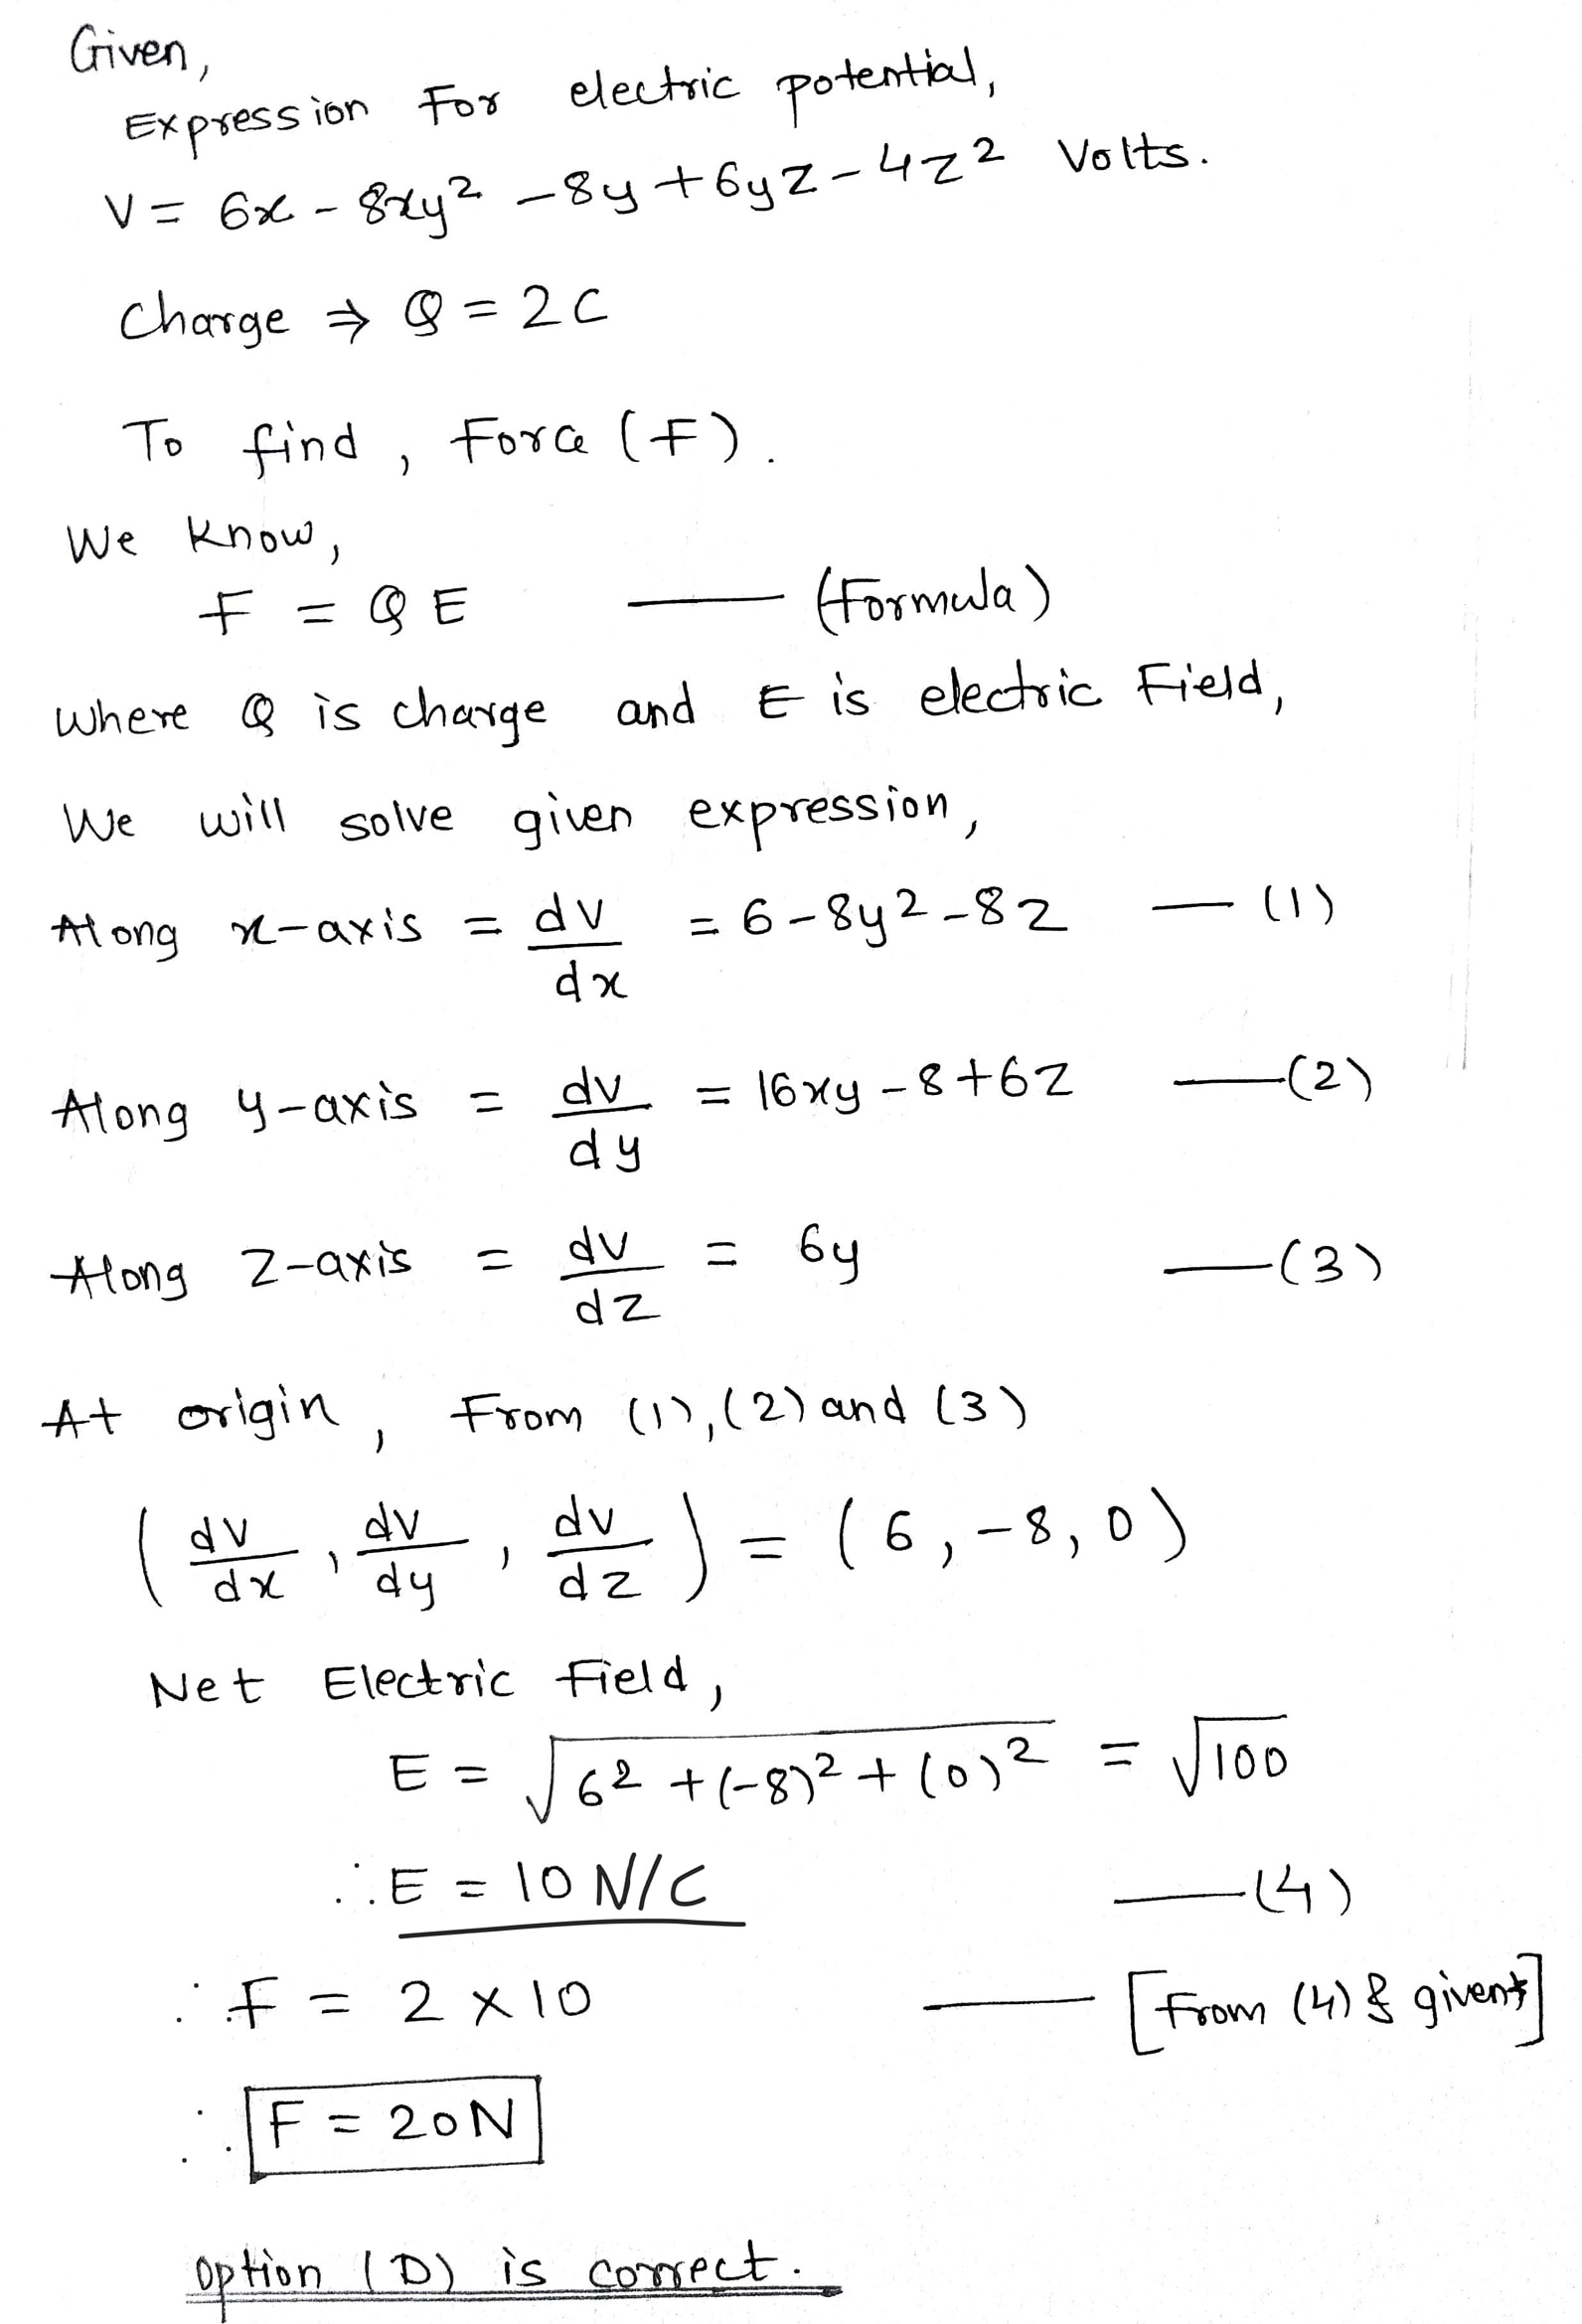 Given,
Expression For electric potential,
V = 6x - 8xy² - 8y + 6yz - 4z² Volts.
Charge ⇒ Q = 2C
To find, Force (F).
We know,
F = QE — (Formula)
where Q is charge and E is electric Field,
We will solve given expression,
Along x-axis = dv/dx = 6 - 8y² - 8z — (1)
Along y-axis = dv/dy = 16xy - 8 + 6z — (2)
Along z-axis = dv/dz = 6y — (3)
At origin, From (1), (2) and (3)
(dv/dx, dv/dy, dv/dz) = (6, -8, 0)
Net Electric Field,
E = √(6² + (-8)² + (0)²) = √100
∴ E = 10 N/C — (4)
∴ F = 2 × 10 — [From (4) & given]
∴ F = 20N
Option (D) is correct.